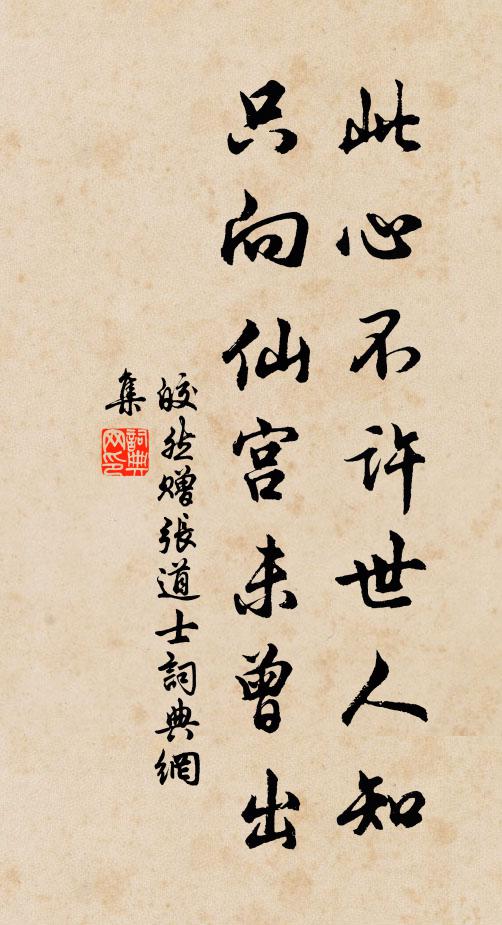 此心不许世人知
只向仙宫未曾出
皎然赠張道士詞典網
集
詞典
网印